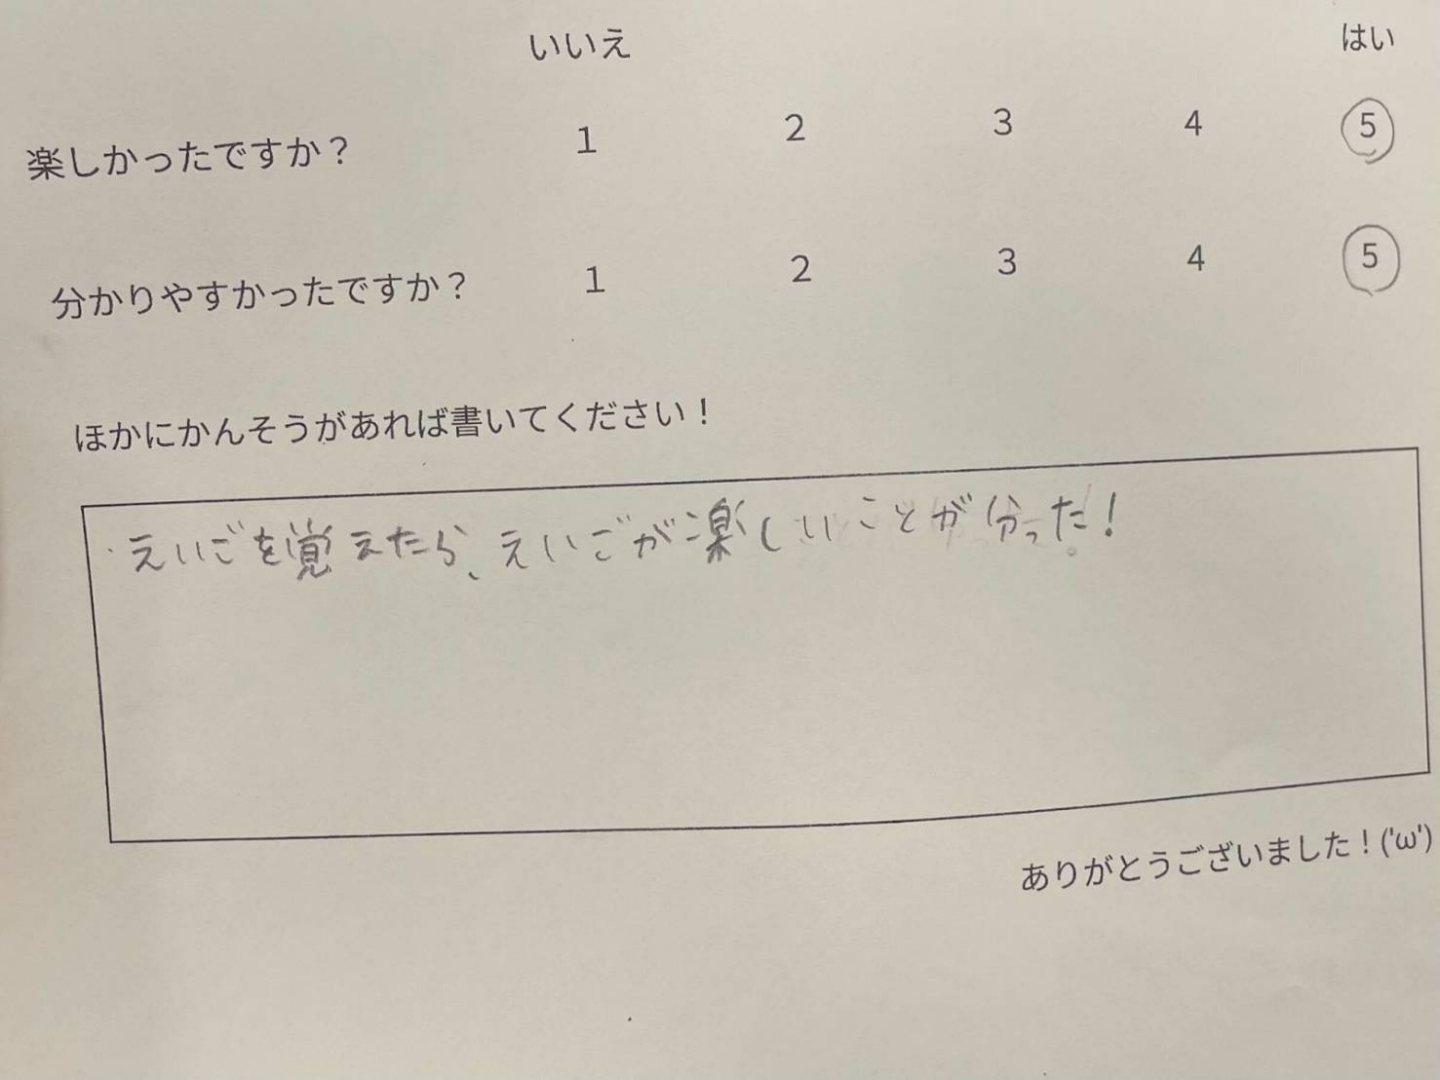 いいえ はい
楽しかったですか？ 1 2 3 4 5
分かりやすかったですか？ 1 2 3 4 5
ほかにかんそうがあれば書いてください！
えいごを覚えたら、えいごが楽しいことが分った！
ありがとうございました！('ω')